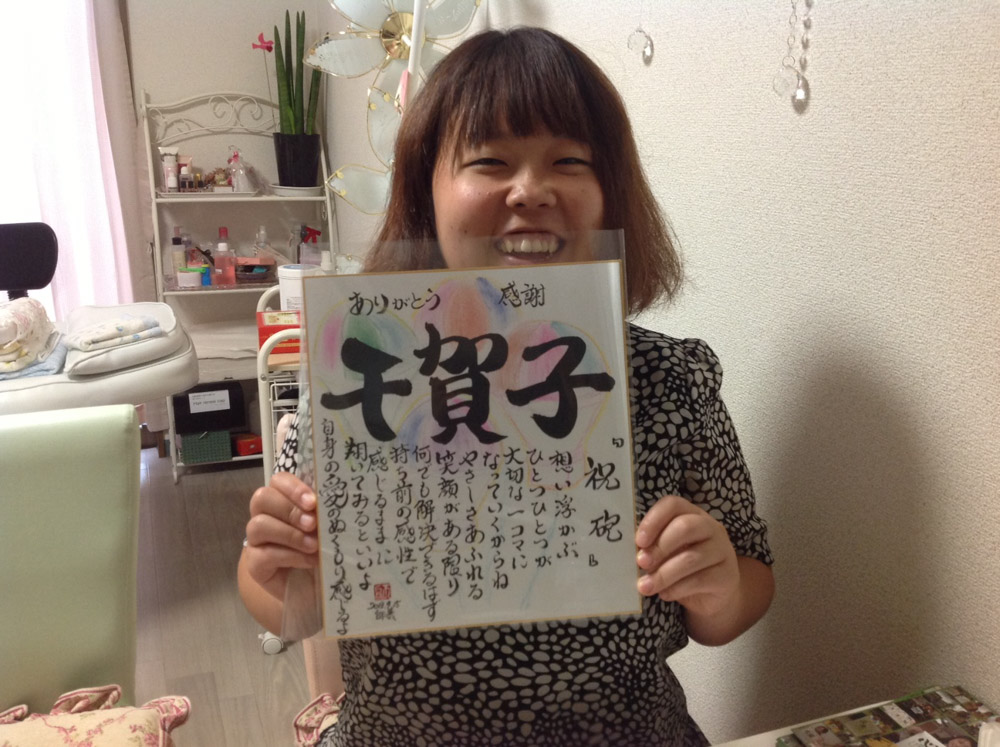 ありがとう
感謝
千賀子
『祝砲』
想い浮かぶ
ひとつひとつが
大切な一コマに
なっていくからね
やさしさあふれる
笑顔がある限り
何でも解決できるはず
持ち前の感性で
感じるままに
翔いてみるといいよ
自身の愛のぬくもり感じるよ